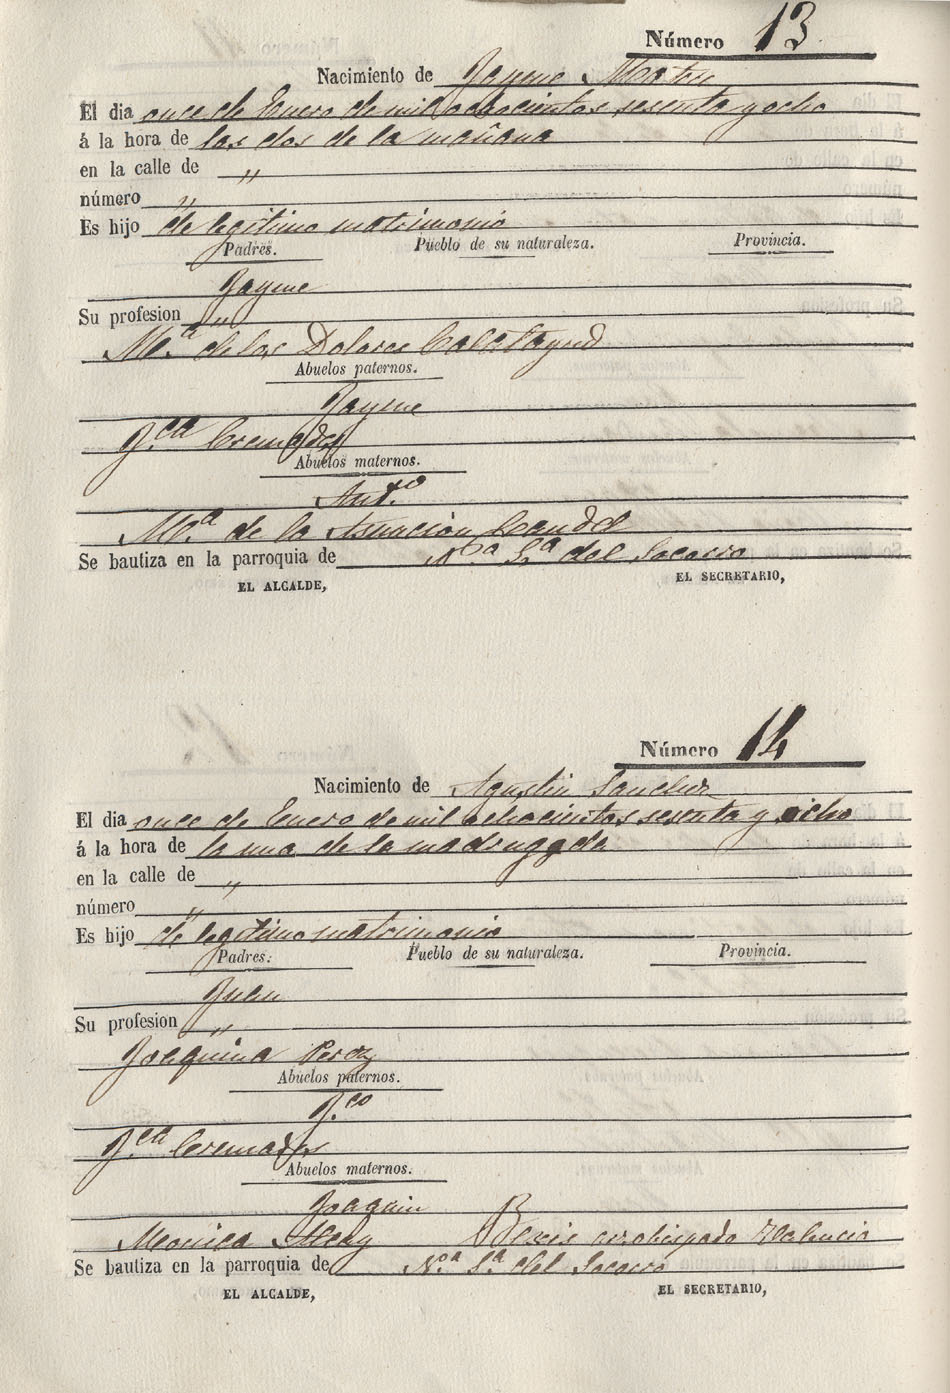 Número 13
Nacimiento de Jayme Mateu
El dia once de Enero de mil ochocientos sesenta y ocho
á la hora de las dos de la mañana
en la calle de "
número "
Es hijo de legitimo matrimonio
Padres. Pueblo de su naturaleza. Provincia.
Jayme
Su profesion "
Mª de los Dolores Calatayud
Abuelos paternos.
Jayme
Fca Cremades
Abuelos maternos.
Antº
Mª de la Asuncion Candel
Se bautiza en la parroquia de Nª Sª del Socorro
EL ALCALDE, EL SECRETARIO,
Número 14
Nacimiento de Agustin Sanchez
El dia once de Enero de mil ochocientos sesenta y ocho
á la hora de la una de la madrugada
en la calle de "
número "
Es hijo de legitimo matrimonio
Padres. Pueblo de su naturaleza. Provincia.
Juan
Su profesion "
Joaquina Perez
Abuelos paternos.
Fco
Fca Cremades
Abuelos maternos.
Joaquin
Monica arzobispado Valencia
Se bautiza en la parroquia de Nª Sª del Socorro
EL ALCALDE, EL SECRETARIO,